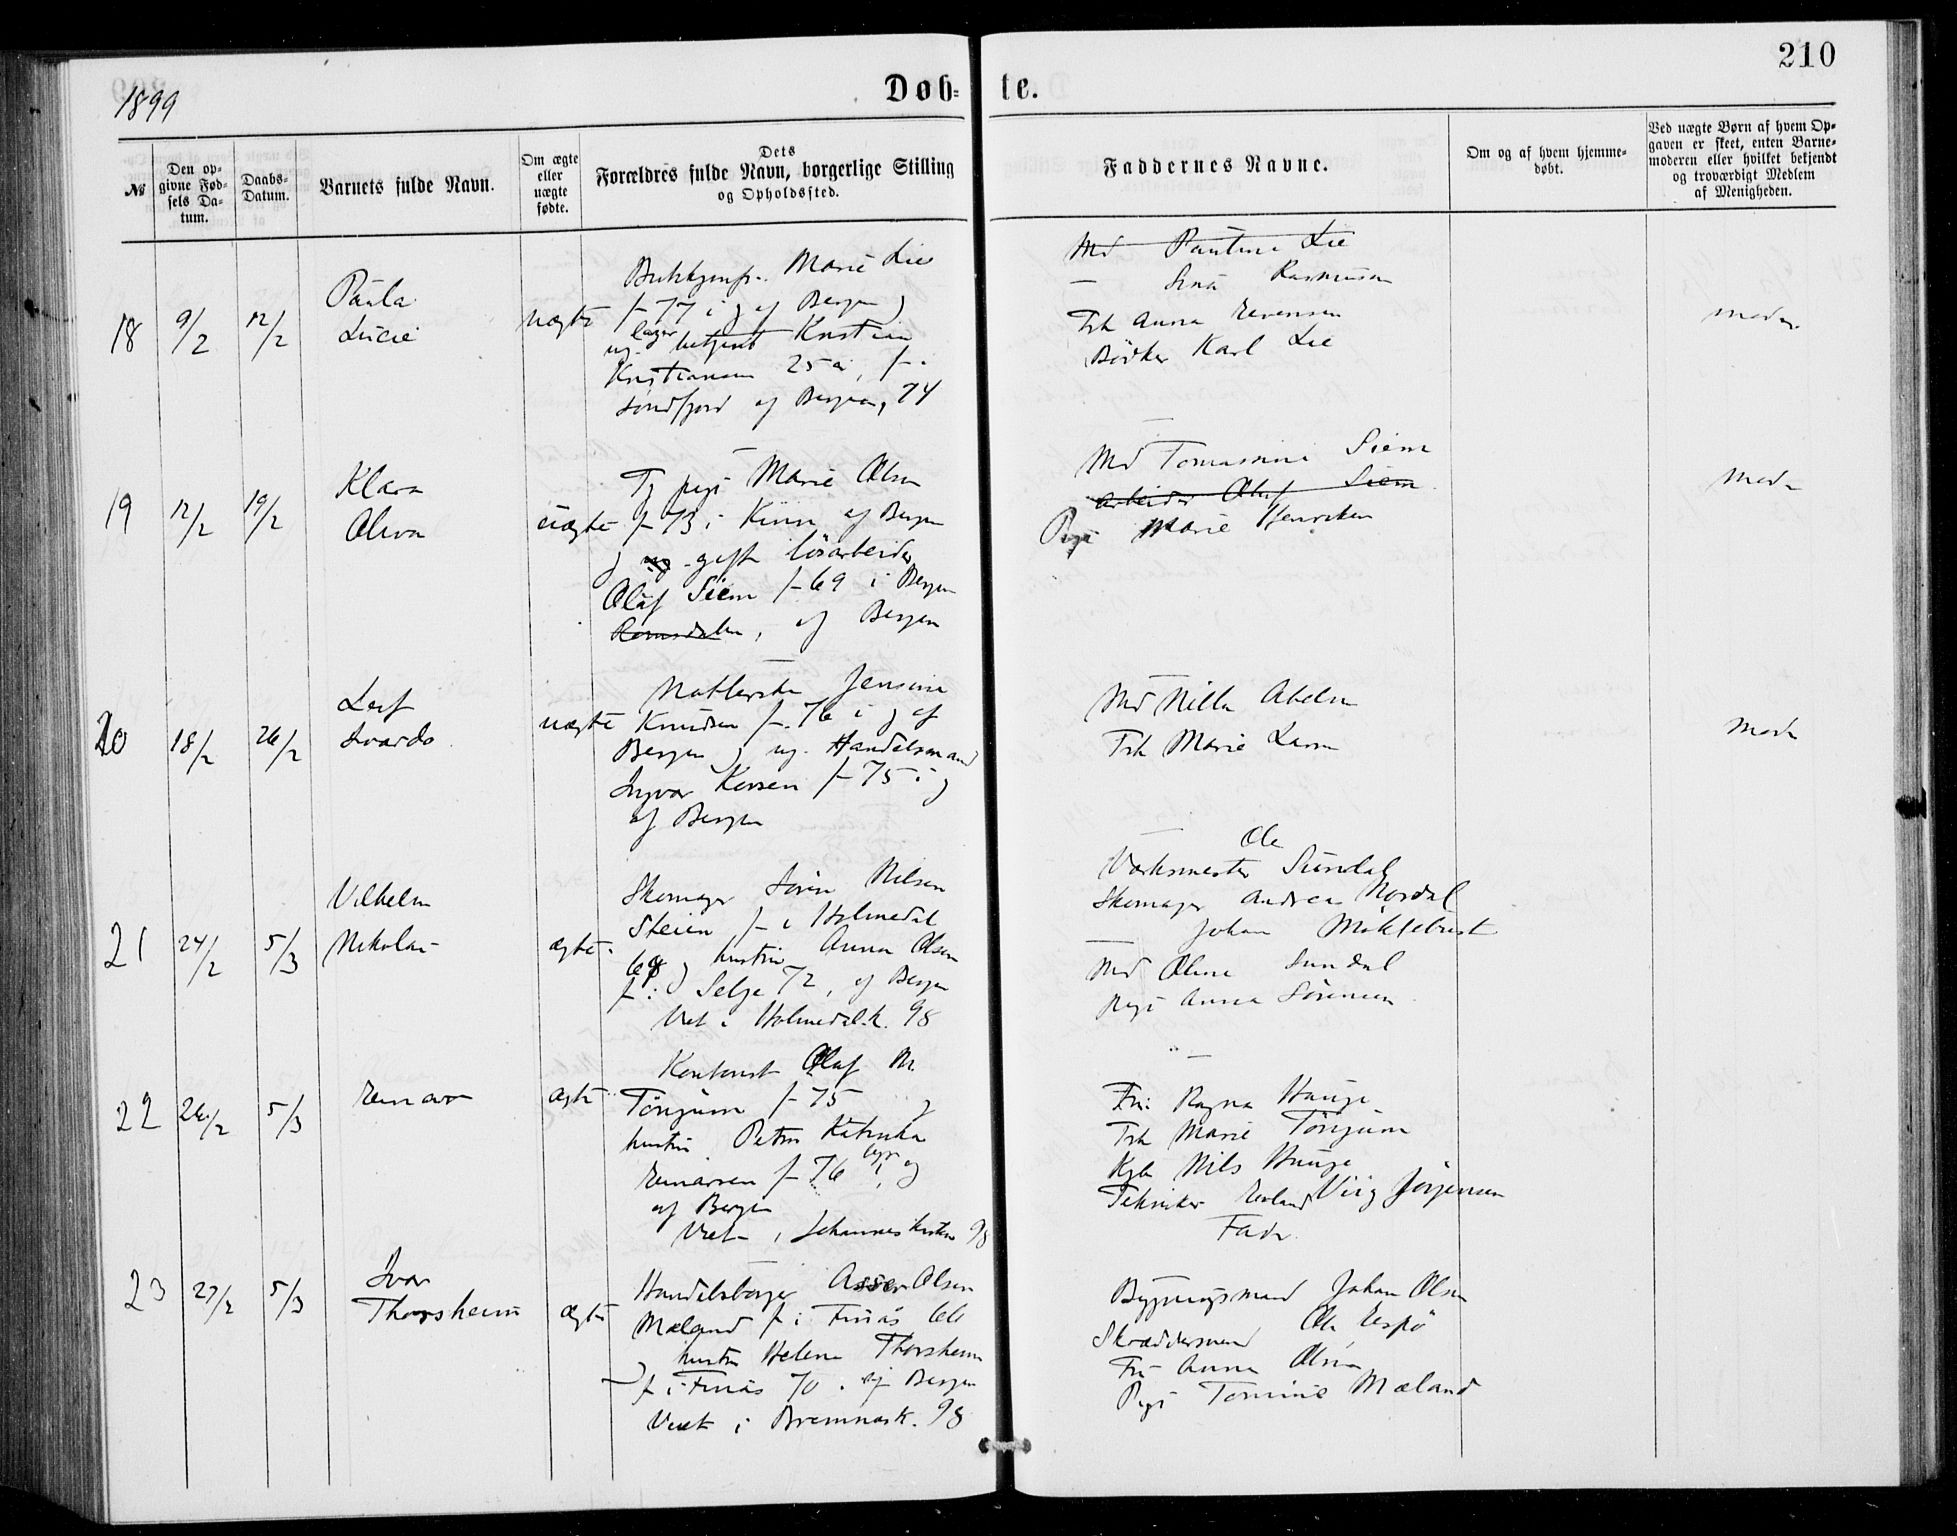 210
1899
Døb- te.
№
Den op-
givne Fød-
sels Da-
tum.
Daabs-
Datum.
Barnets fulde Navn.
Om ægte
eller
uægte
fødte.
Dets
Forældres fulde Navn, borgerlige Stilling
og Opholdssted.
Faddernes Navne.
Om og af hvem hjemme-
døbt.
Ved uægte Børn af hvem Op-
gaven er skeet, enten Barne-
moderen eller hvilket bekjendt
og troværdigt Medlem
af Menigheden.
18 9/2 12/2
Paula
Lucie
uægte
Marie Lie
f. 77 i og af Bergen og
ug. lager betjent Kristian
Kristiansen 25 a, f. i
Søndfjord af Bergen, 74
Md Paulina Lie
— Sina Rasmussen
Frk Anna Evensen
Bødker Karl Lie
moder
19 12/2 19/2
Klara
uægte
Tj pige Marie Olsen
f. 73 i Kinn af Bergen
og ug. gift løsarbeider
Olaf Siem f. 69 i Bergen
Romsdalen, af Bergen
Md Tomasine Siem
arbeider Oluf Siem
Pige Marie Henriksen
moder
20 18/2 26/2
Leif
uægte
Jensine
Knudsen f. 76 i og af
Bergen og ug. Handelsmand
Ingvar f. 75 i og
af Bergen
Md Nilla Abelsen
Frk Marie Larsen
moder
21 24/2 5/3
Vilhelm
Nikolai
ægte
Skomager Søren Nilsen
Steien f. i Holmedal
68 og hustru Anna Olsen
f. i Selje 72, af Bergen
Viet i Holmedal k. 98
Ole
Værksmester Sundal
Skomager Andreas Nordal
Johan Møklebust
Md Oline Sundal
Pige Anna Sørensen
22 26/2 5/3
Einar
ægte
Kontorist Olaf M.
Tønjum f. 75 og
hustru Petra Katinka
Einarsen f. 76 i og
af Bergen
Viet i Johanneskirken 98
Fru Ragna Hauge
Frk Marie Tønjum
Nils Hauge
Tekniker Erland Viig Jørgensen
Fader
23 27/2 5/3
Ivar
Thorsheim
ægte
Handelsborger Asser Olsen
Mæland f. i Finås 66
og hustru Helene Thorsheim
f. i Finås 70. af Bergen
Viet i Bremnesk. 98
Bygningsmand Johan Olsen
Skræddersvend Ole Espø
Fru Anna Olsen
Pige Tomine Mæland